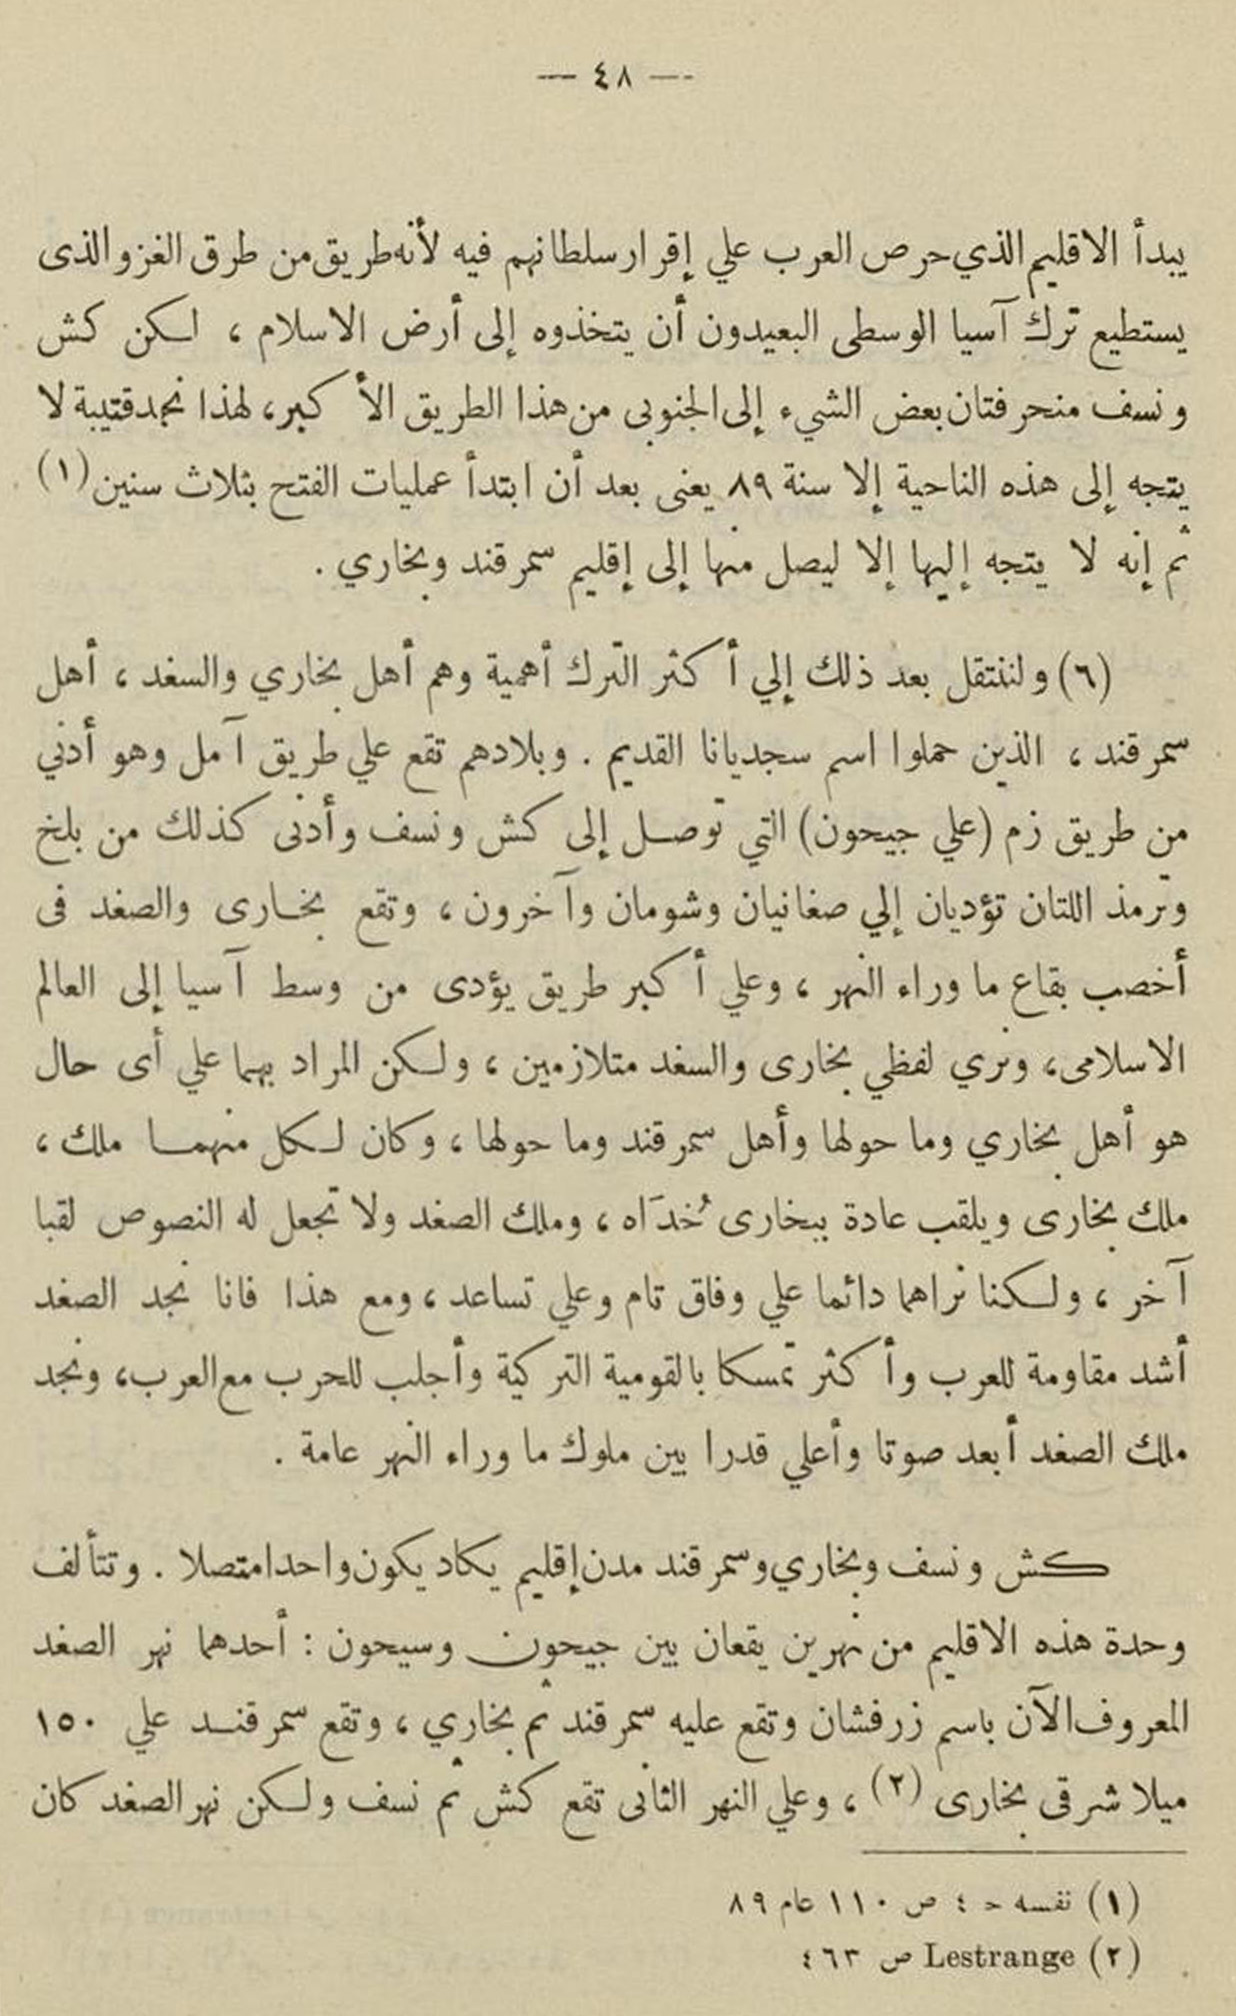 — ٤٨ —
يبدأ الاقليم الذي حرص العرب علي إقرار سلطانهم فيه لأنه طريق من طرق الغزو الذى
يستطيع ترك آسيا الوسطى البعيدون أن يتخذوه إلى أرض الاسلام ، لكن كش
ونسف منحرفتان بعض الشيء إلى الجنوبى من هذا الطريق الأكبر، لهذا نجد قتيبة لا
يتجه إلى هذه الناحية إلا سنة ٨٩ يعنى بعد أن ابتدأ عمليات الفتح بثلاث سنين (١)
ثم إنه لا يتجه إليها إلا ليصل منها إلى إقليم سمرقند وبخاري .
(٦) ولننتقل بعد ذلك إلي أكثر الترك أهمية وهم أهل بخاري والسغد ، أهل
سمرقند ، الذين حملوا اسم سجديانا القديم . وبلادهم تقع علي طريق آمل وهو أدني
من طريق زم (علي جيحون) التي توصل إلى كش ونسف وأدنى كذلك من بلخ
وترمذ اللتان تؤديان إلي صغانيان وشومان وآخرون ، وتقع بخارى والصغد فى
أخصب بقاع ما وراء النهر ، وعلي أكبر طريق يؤدى من وسط آسيا إلى العالم
الاسلامى، ونري لفظي بخارى والسغد متلازمين ، ولكن المراد بهما علي أى حال
هو أهل بخاري وما حولها وأهل سمرقند وما حولها ، وكان لكل منهما ملك ،
ملك بخارى ويلقب عادة ببخارى خُدَاه ، وملك الصغد ولا تجعل له النصوص لقبا
آخر ، ولكنا نراهما دائما علي وفاق تام وعلي تساعد ، ومع هذا فانا نجد الصغد
أشد مقاومة للعرب وأكثر تمسكا بالقومية التركية وأجلب للحرب مع العرب، ونجد
ملك الصغد أبعد صوتا وأعلي قدرا بين ملوك ما وراء النهر عامة .
كش ونسف وبخاري وسمرقند مدن إقليم يكاد يكون واحدا متصلا . وتتألف
وحدة هذه الاقليم من نهرين يقعان بين جيحون وسيحون : أحدهما نهر الصغد
المعروف الآن باسم زرفشان وتقع عليه سمرقند ثم بخاري ، وتقع سمرقند علي ١٥٠
ميلا شرقى بخارى (٢) ، وعلي النهر الثانى تقع كش ثم نسف ولكن نهر الصغد كان
(١) نفسه حـ ٤ ص ١١٠ عام ٨٩
(٢) Lestrange ص ٤٦٣